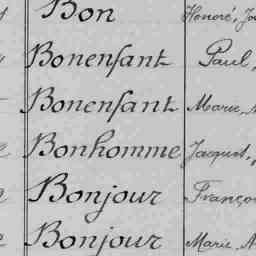 Bon Honoré, Jo
Bonenfant Paul,
Bonenfant Marie,
Bonhomme Jacquet,
Bonjour Franço
Bonjour Marie